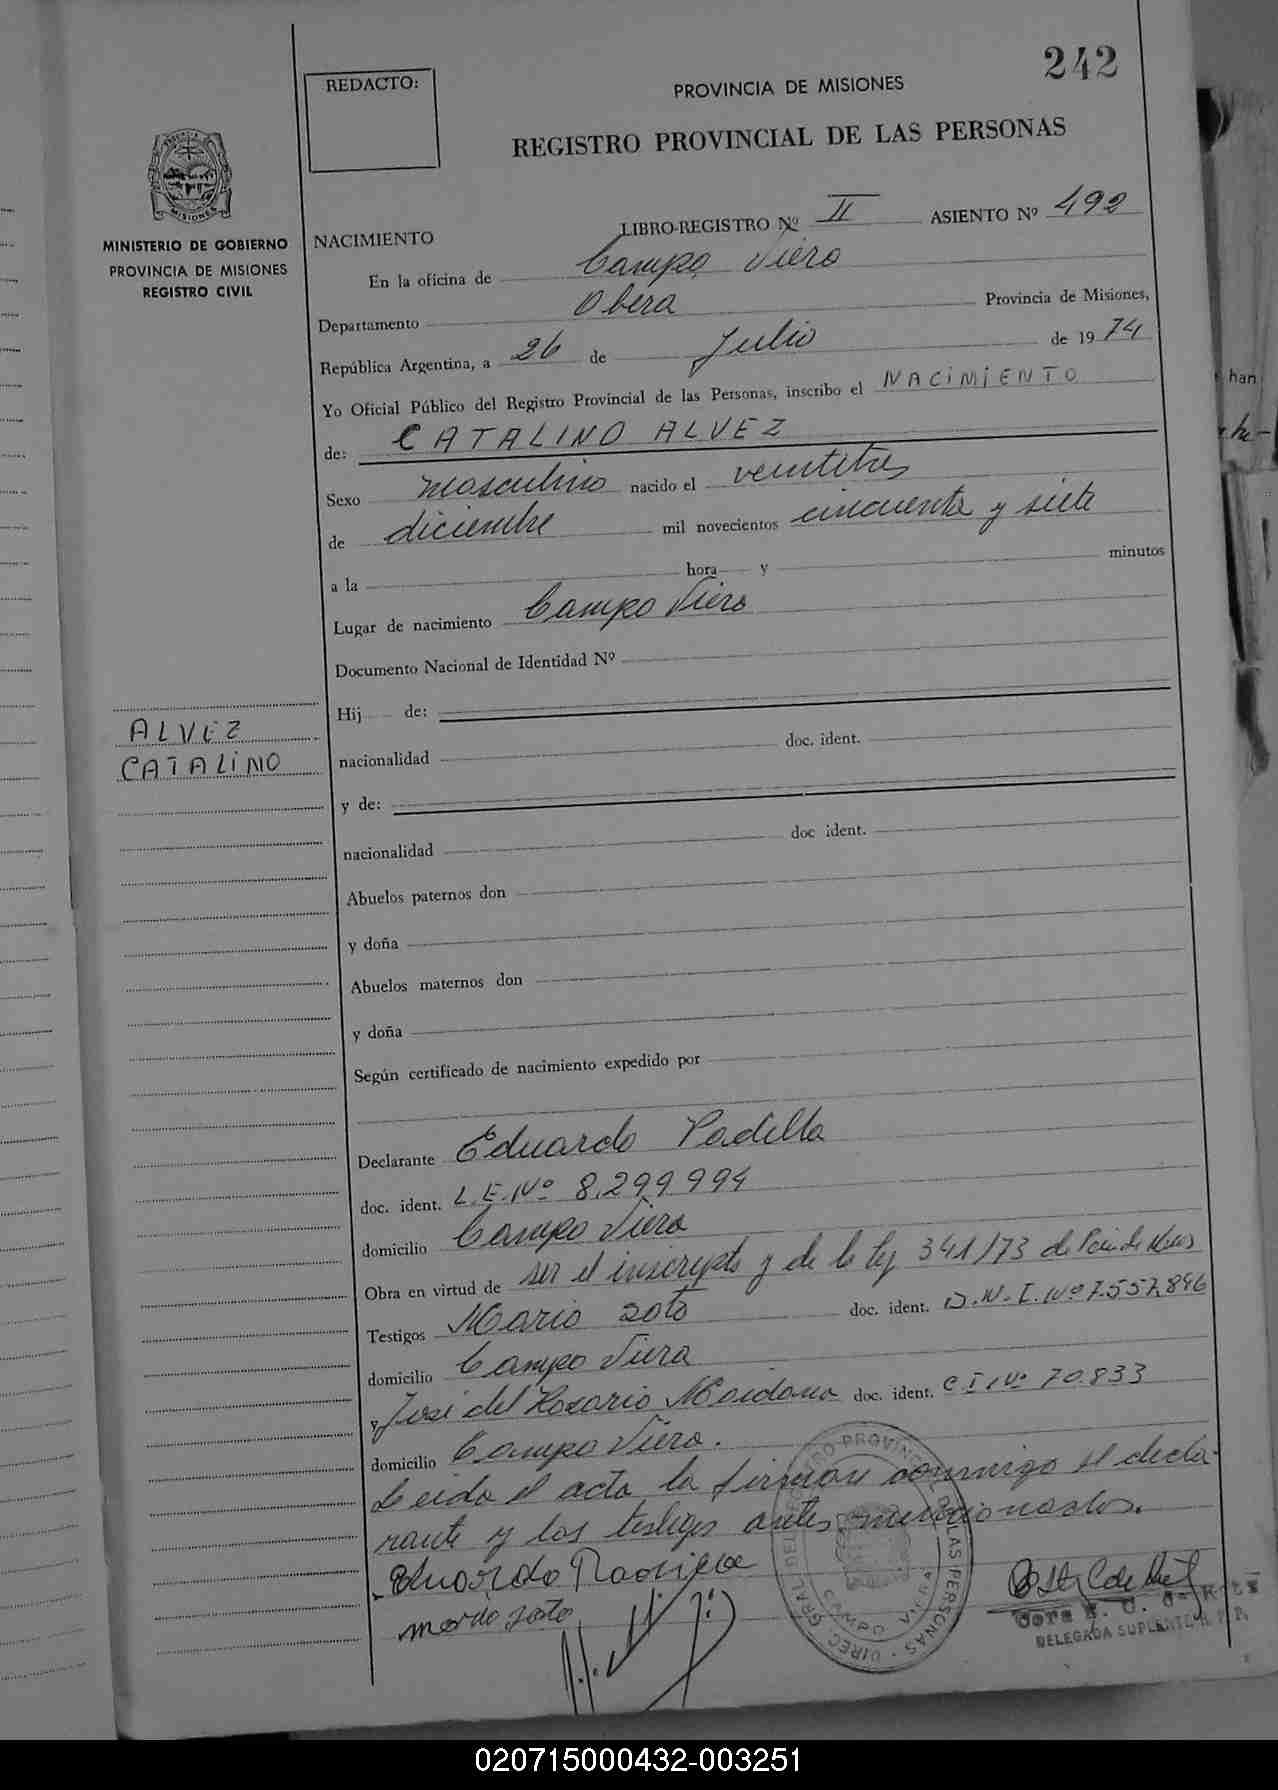 242
REDACTO:
PROVINCIA DE MISIONES
REGISTRO PROVINCIAL DE LAS PERSONAS
MISIONES
MINISTERIO DE GOBIERNO
PROVINCIA DE MISIONES
REGISTRO CIVIL
NACIMIENTO
LIBRO-REGISTRO Nº II ASIENTO Nº 492
En la oficina de Campo Viera
Departamento Obera Provincia de Misiones,
República Argentina, a 26 de Julio de 1974
Yo Oficial Público del Registro Provincial de las Personas, inscribo el NACIMIENTO
de: CATALINO ALVEZ
Sexo masculino nacido el veintitres
de diciembre mil novecientos cincuenta y siete
a la hora y minutos
Lugar de nacimiento Campo Viera
Documento Nacional de Identidad Nº
Hij de:
ALVEZ
CATALINO
nacionalidad doc. ident.
y de:
nacionalidad doc ident.
Abuelos paternos don
y doña
Abuelos maternos don
y doña
Según certificado de nacimiento expedido por
Declarante Eduardo Padilla
doc. ident. L.E.Nº 8.299.994
domicilio Campo Viera
Obra en virtud de ser el inscripto y de la ley 341/73 de
Testigos Mario Soto doc. ident. D.N.I.Nº 7.557.896
domicilio Campo Viera
y José del Rosario Maidana doc. ident. C I Nº 70.833
domicilio Campo Viera.
Leida el acta la firman conmigo el decla-
rante y los testigos antes mencionados.
Eduardo Padilla
mario soto
DIREC. GRAL. DEL REGISTRO PROVINCIAL DE LAS PERSONAS
CAMPO VIERA
DELEGADA SUPLENTE R. P. P.
020715000432-003251